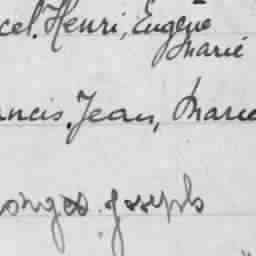 cel, Henri, Eugène
Marie
ancis, Jean, Marie
orges Joseph